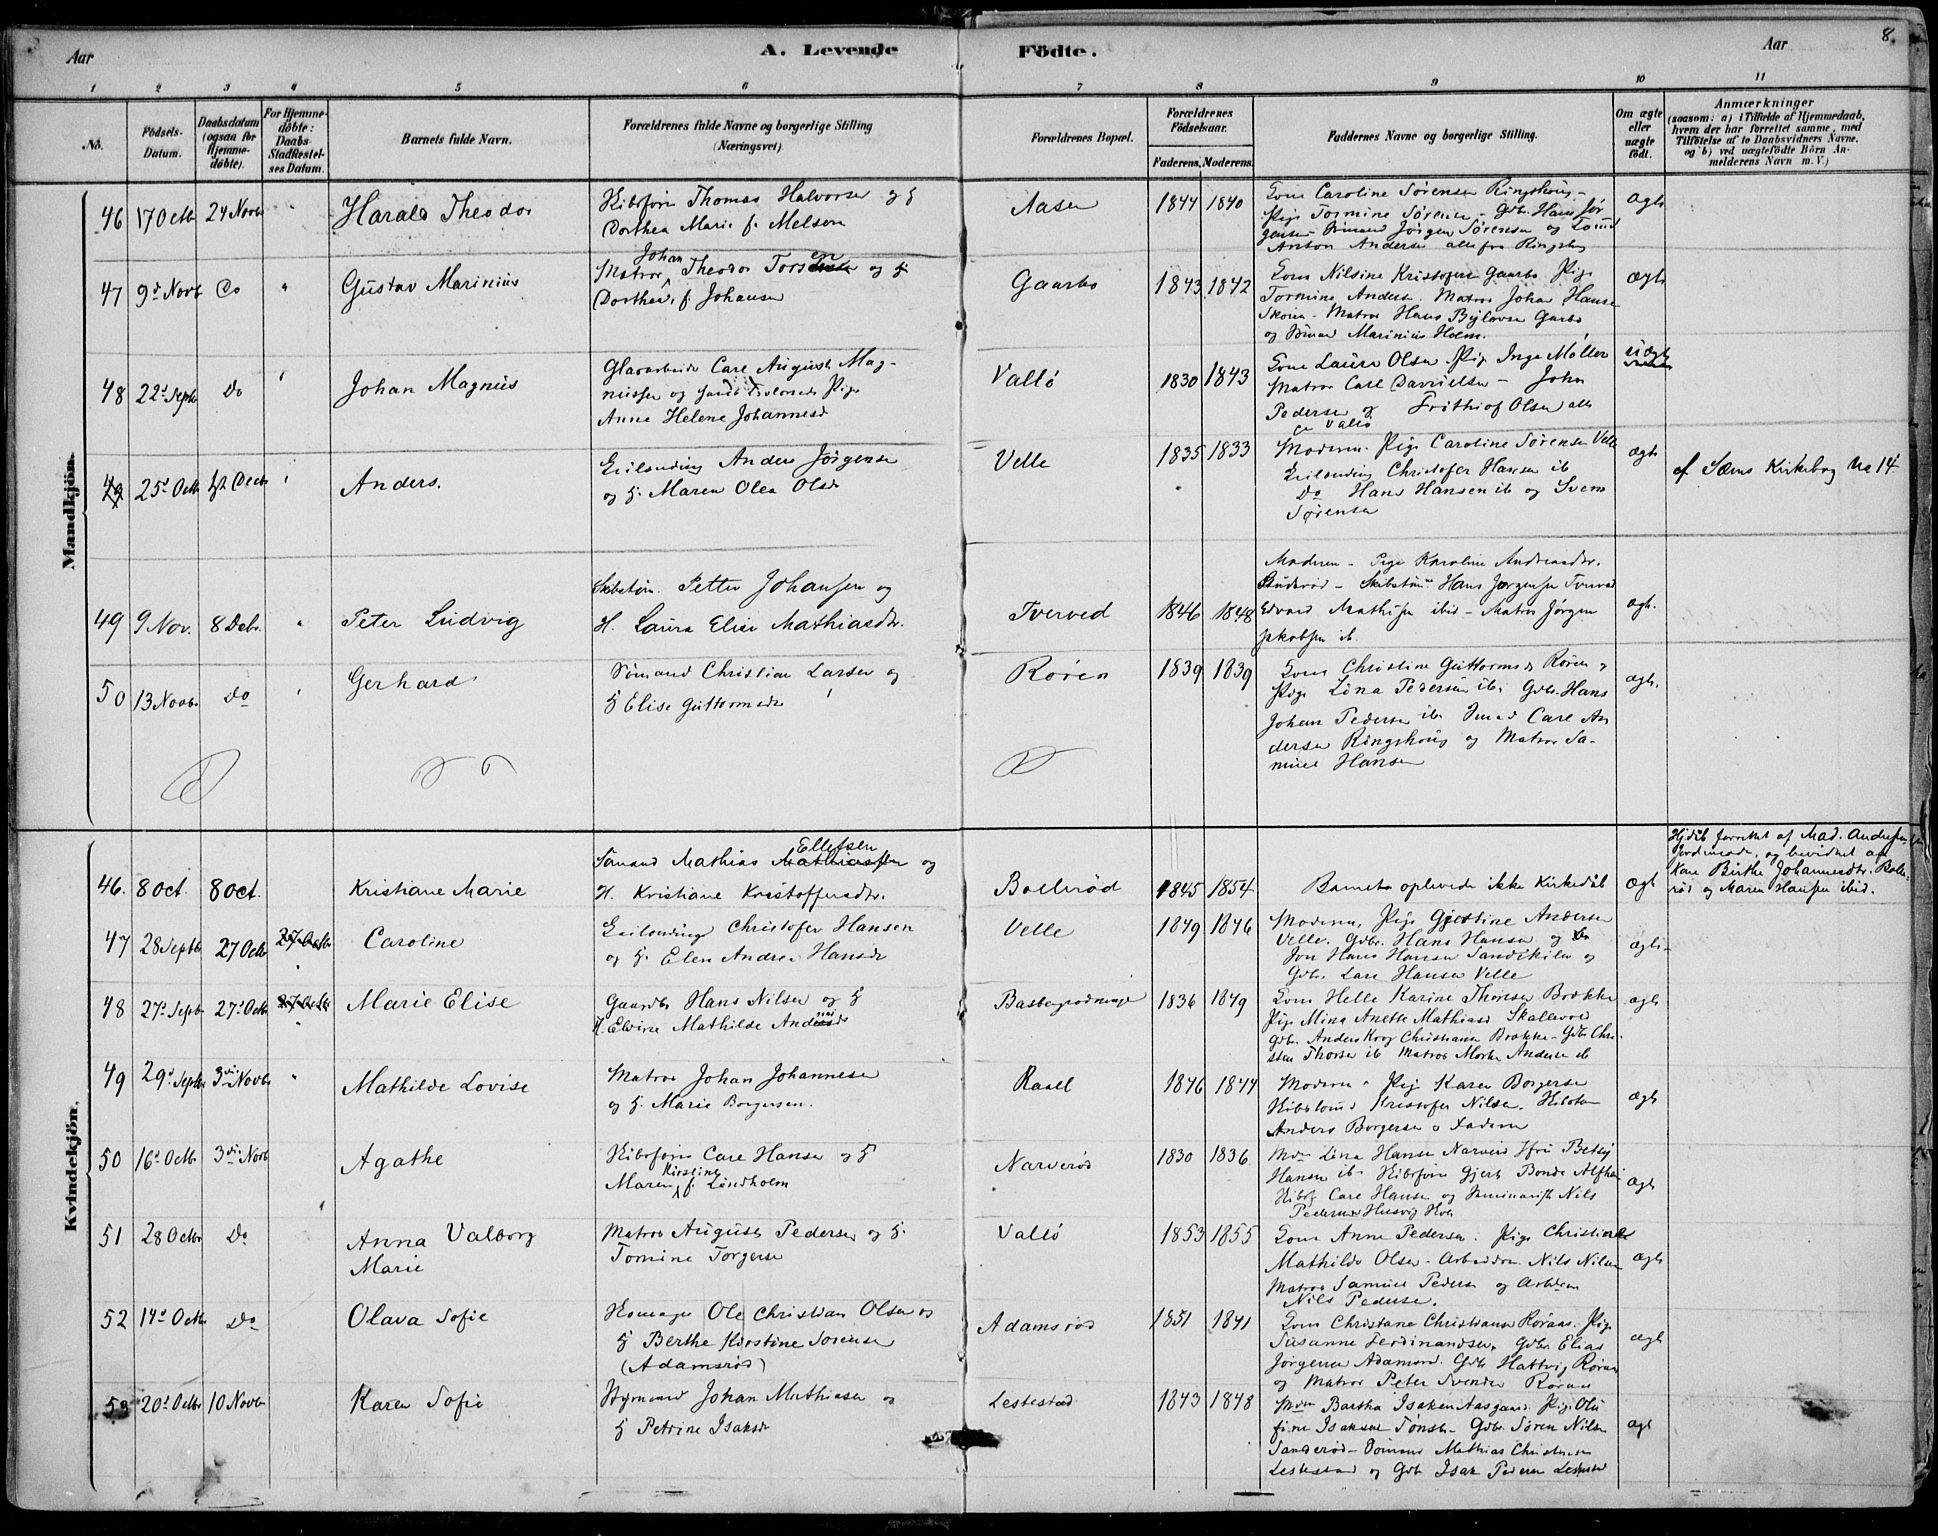 8.
Aar
A. Levende
Födte.
Aar
1 2 3 4 5 6 7 8 9 10 11
No.
Födsels-Datum.
Daabsdatum (ogsaa for Hjemme-döbte).
For Hjemme-döbte: Daabs-Stadfæstel-ses Datum.
Barnets fulde Navn.
Forældrenes fulde Navne og borgerlige Stilling (Næringsvei).
Forældrenes Bopæl.
Forældrenes Födselsaar.
Faderens. Moderens.
Faddernes Navne og borgerlige Stilling.
Om ægte eller uægte födt.
Anmærkninger
(saasom: a) i Tilfælde af Hjemmedaab,
hvem der har forrettet samme, med
Tilföielse af to Daabsvidners Navne,
og b) ved uægtefödte Börn An-
melderens Navn m. V.)
Mandkjön.
46 17 Octb 24 Novb Harald Theodor
Thomas Halvorsen og H
Dorthea Marie f. Melsom
Aasen 1844 1840
Caroline Sørensen Ringshoug -
Pige Tormine Sørensen - Gdbr. Hans Jør-
gensen Jørgen Sørensen og
Anton Andersen alle fra Ringshoug
ægte
47 9d Novb Do Gustav Marinius
Johan
Matros Theodor og H.
Dorthea f. Johansen
Gaarbo 1843 1842
Nilsine Kristofersen Gaarbo Pige
Tormine Andersen. Matros Johan Hansen
Matros Hans Garbo
og Marinius Holm.
ægte
48 22d Septb Do Johan Magnus
Glasarbeider Carl August Mag-
nussen og Pige
Anne Helene Johannesd
Vallö 1830 1843
Laura Olsen Pige Inga Møller
Matros Carl Danielsen - John
Pedersen og Frithiof Olsen alle
Vallö
uægte
49 25d Octb 1ste Decb Anders.
Anders Jørgensen
og H. Maren Olea Olsd
Velle 1835 1833
Moderen. Pige Caroline Sørensen Velle
Christofer Hansen ib
Do Hans Hansen ib og Svend
Sørensen
ægte
cf Sæms Kirkebog No 14
49 9 Nov. 8 Debr. Peter Ludvig
Skibstøm. Petter Johansen og
H. Laura Elise Mathiasdr.
Tverved 1846 1848
Moderen - Pige Karoline Andreasdr.
Hans Jørgensen Tverved
Edvard Mathisen ibid - Matros Jørgen
Jakobsen ib.
ægt.
50 13 Novbr Do Gerhard
Sømand Christian Larsen og
H Elise Guttormsdr
Røren 1839 1839
Christine Guttormsd Røren
Pige Lina Pedersen ib. Gdbr. Hans
Johan Pedersen ib Carl An
dersen Ringshoug og Matros Sa-
muel Hansen
ægt.
Kvindekjön.
46. 8 Oct. 8 Oct. Kristiane Marie
Ellefsen
Sømand Mathias Mathiassen og
H. Kristiane Kristoffersdtr.
Bollerød 1845 1854
Barnet oplevede ikke Kirkedåb
ægt
Hjdåb forrettet af Mad. Andersen
Jordmoder, og bevidnet af
Kone Birthe Johannesdtr. Bolle-
rød og Maren Hansen ibid.
47 28 Septb 27 Octb 27 Octbr Caroline
Christofer Hansen
og H. Elen Andrea Hansdr
Velle 1849 1846
Moderen, Pige Gjertine Andersen
Velle. Gdbr. Hans Hansen og
Hans Hansen og
Gdbr. Lars Hansen Velle
ægte
48 27d Septb 27d Octb 27 Octb Marie Elise
Gaardbr Hans Nilsen og H
H. Elvine Mathilde
1836 1849
Helle Karine Thoresen Brække
Pige Mina Anette Mathiasd Skallevold
Gdbr. Anders Christiansen Brække - Gdbr Chri-
sten Thorsen ib Matros Andersen ib
ægte
49 29d Septbr 3die Novbr Mathilde Lovise
Matros Johan Johannesen
og H. Marie Borgersen.
Raael 1846 1844
Moderen - Pige Karen Borgersen
Kristofer Nilsen.
Anders Borgersen o Faderen
ægte
50 16d Octb 3die Novb Agathe
Carl Hansen og H
Kirstine
Maren f. Lindholm
Narverød 1830 1836
Lina Hansen Narverød Betsy
Hansen ib - Gjert Bonde
Carl Hansen og Seminarist Nils
Pedersen
ægte
51 28 Octbr Do Anna Valborg
Marie
Matros August Pedersen og H.
Tomine Torgersen
Vallö 1853 1855
Anne Pedersen. Pige Christiane
Mathilde Olsen - Arbeider Nils Nilsen
Matros Samuel Pedersen og
Nils Pedersen.
ægte
52 14d Octbr Do Olava Sofie
Ole Christian Olsen og
H Berthe Kirstine Sørensen
(Adamsrød)
Adamsrød 1851 1841
Christiane Christiansen Røraas. Pige
Susanne Ferdinandsen, Gdbr. Elias
Jørgensen Adamsrød. Gdbr Hattvig Røraas
og Matros Peter Svendsen Røraas
ægte
53 20d Octbr 10 Novbr Karen Sofie
Johan Mathiasen og
H Petrine Isaksdr
Lestestad 1843 1848
Bartha Isaksen Aasgaard. Pige Olu
fine Isaksen Tønsb - Gdbr. Søren Nilsen
Sanderød - Sømand Mathias Christensen
Lestestad og Gdbr Isak Pedersen Lestestad
ægte